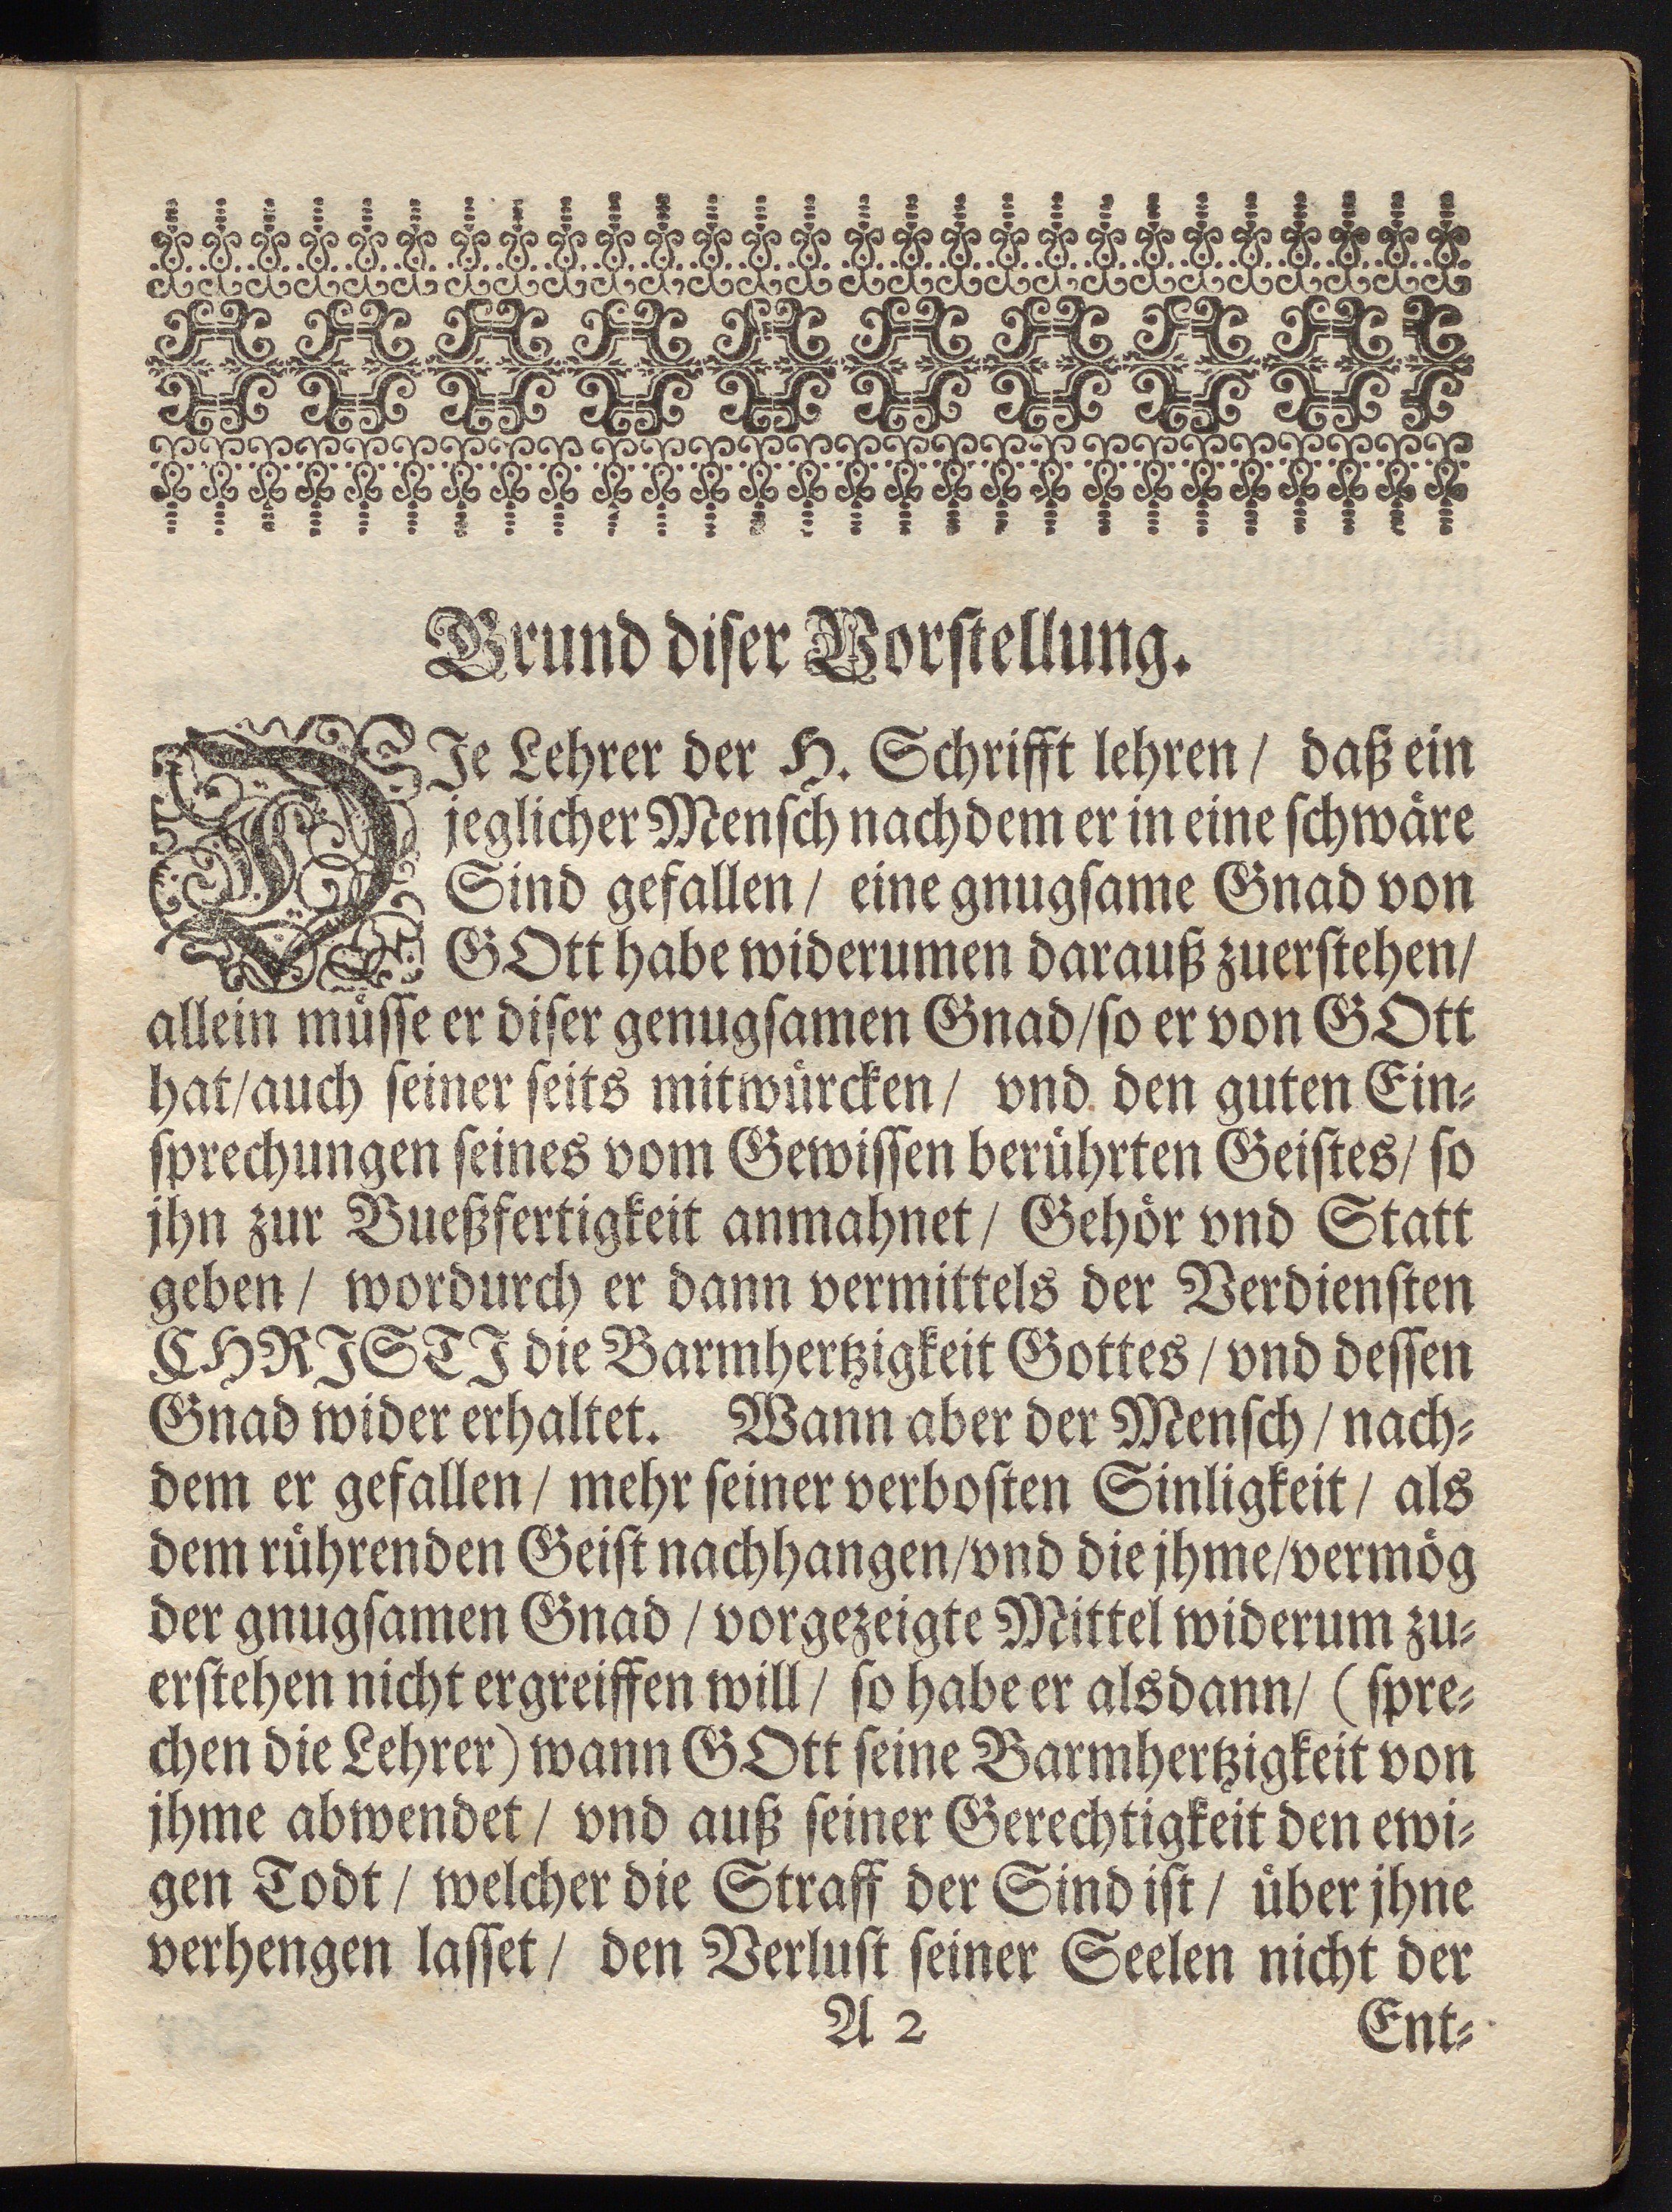 Grund diser Vorstellung.
DJe Lehrer der H. Schrifft lehren / daß ein
jeglicher Mensch nachdem er in eine schwäre
Sind gefallen / eine gnugsame Gnad von
GOtt habe widerumen darauß zuerstehen/
allein müsse er diser genugsamen Gnad/so er von GOtt
hat/auch seiner seits mitwürcken / vnd den guten Ein-
sprechungen seines vom Gewissen berührten Geistes/ so
jhn zur Bueßfertigkeit anmahnet / Gehör vnd Statt
geben / wordurch er dann vermittels der Verdiensten
CHRJSTJ die Barmhertzigkeit Gottes / vnd dessen
Gnad wider erhaltet. Wann aber der Mensch / nach-
dem er gefallen / mehr seiner verbosten Sinligkeit / als
dem rührenden Geist nachhangen/vnd die jhme/vermög
der gnugsamen Gnad / vorgezeigte Mittel widerum zu-
erstehen nicht ergreiffen will / so habe er alsdann/ (spre-
chen die Lehrer) wann GOtt seine Barmhertzigkeit von
jhme abwendet / vnd auß seiner Gerechtigkeit den ewi-
gen Todt / welcher die Straff der Sind ist / über jhne
verhengen lasset / den Verlust seiner Seelen nicht der
A 2 Ent-